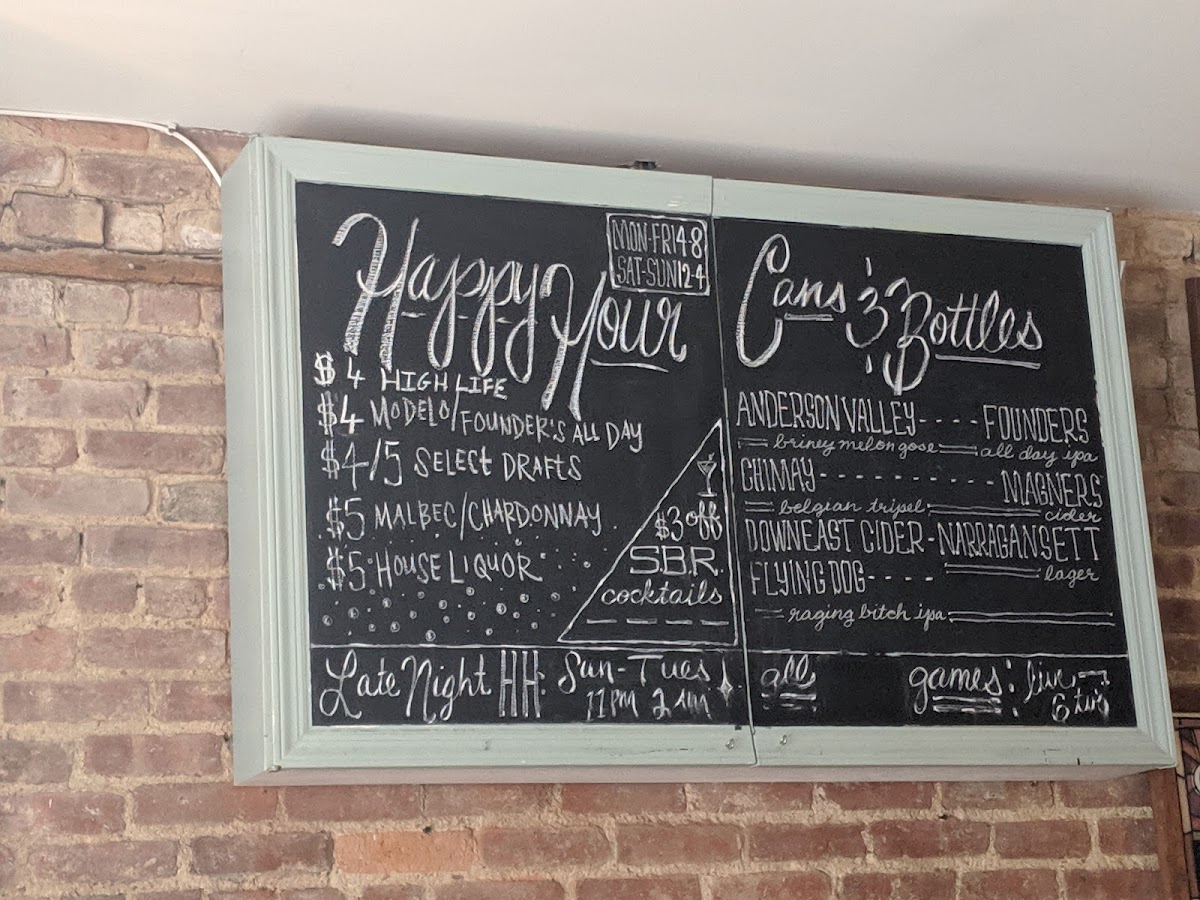 Happy Hour
MON-FRI 4-8
SAT-SUN 12-4
$4 HIGH LIFE
$4 MODELO/FOUNDER'S ALL DAY
$4/5 SELECT DRAFTS
$5 MALBEC/CHARDONNAY
$5 HOUSE LIQUOR
$3 off
S.B.R.
cocktails
Late Night HH: Sun-Tues
11pm 2am
Cans & Bottles
ANDERSON VALLEY - - - - FOUNDERS
briney melon gose all day ipa
CHIMAY - - - - - - - - - - MAGNERS
belgian tripel cider
DOWNEAST CIDER - NARRAGANSETT
lager
FLYING DOG - - - - -
raging bitch ipa
all games: live
6 tvs